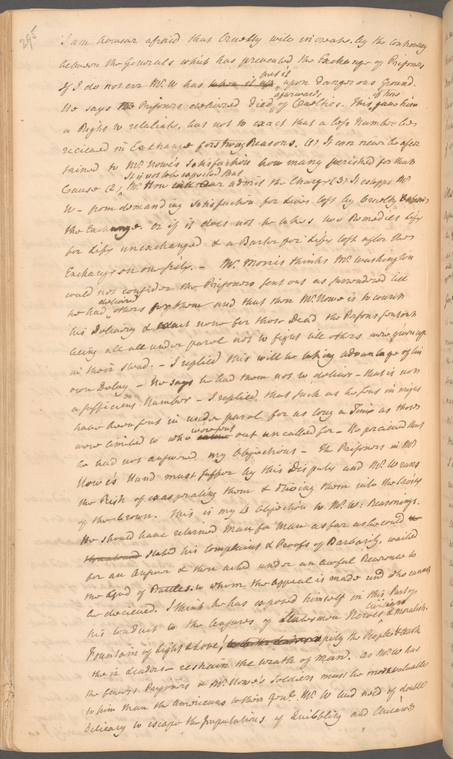 296
I am however afraid that Cruelty will increase by the Controversy
between the Generals which has prevented the Exchange of Prisoners
If I do not err Mr. W has put it upon dangerous ground.
He says Prisoners delivered died afterwards of Cruelties. This gave him
a Right to retaliate, but not to exact that a less Number be
recieved in Exchange for three Reasons. (1) It can never be ascer
tained to Mr. Howe's Satisfaction how many perished for that
Cause (2) It is not to be expected that Mr. How will ever admit the Charge (3) It estopps Mr
W– from demanding Satisfaction for lives lost by Cruelty before
the Exchange. Or if it does not he takes two Remedies life
for life unexchanged & a Barter for lifes lost after the
Exchange or on the first. — Mr. Morris thinks Mr. Washington
could not consider the Prisoners sent out as surrendered till
he had delivered others for them and that then Mr. Howe is to count
his Delivery & exact none for those Dead the Persons sent out
being all under parol not to fight till others were given up
in their stead. — I replied this will be taking advantage of his
own Delay – He says he had them not to deliver – that is not
a sufficient Number – I replied, that such as he had in might
have been sent in under parol for as long a Time as those
were limited to who were sent out uncalled for – He percieved that
he had not answered my Objections – The Prisoners in Mr
Howe's Hand must suffer by this Dispute and Mr. W runs
the Risk of exasperating them & driving them into the Cavity
of the Crown. This is my Objection to Mr. W: Reasonings.
He should have returned Man for Man as far as he could
stated his Complaint & Proofs of Barbarity, waited
for an Answer & then acted under an awful Reverence to
the God of Battles to whom the Appeal is made and who cannot
be decieved. I think he has exposed himself in this Part of
his Conduct to the Censures of Statesmen Heroes Civilians & Moralists.
Fountain of Light & Love! pity the People & teach
their Leaders – restrain the wrath of Man. As Mr. W has
the fewest Prisoners & Mr. Howe's Soldiers must be more valuable
to him than the Americans to their Genl. Mr. W had need of double
Delicacy to escape the Imputations of Quibbling and Chicanes